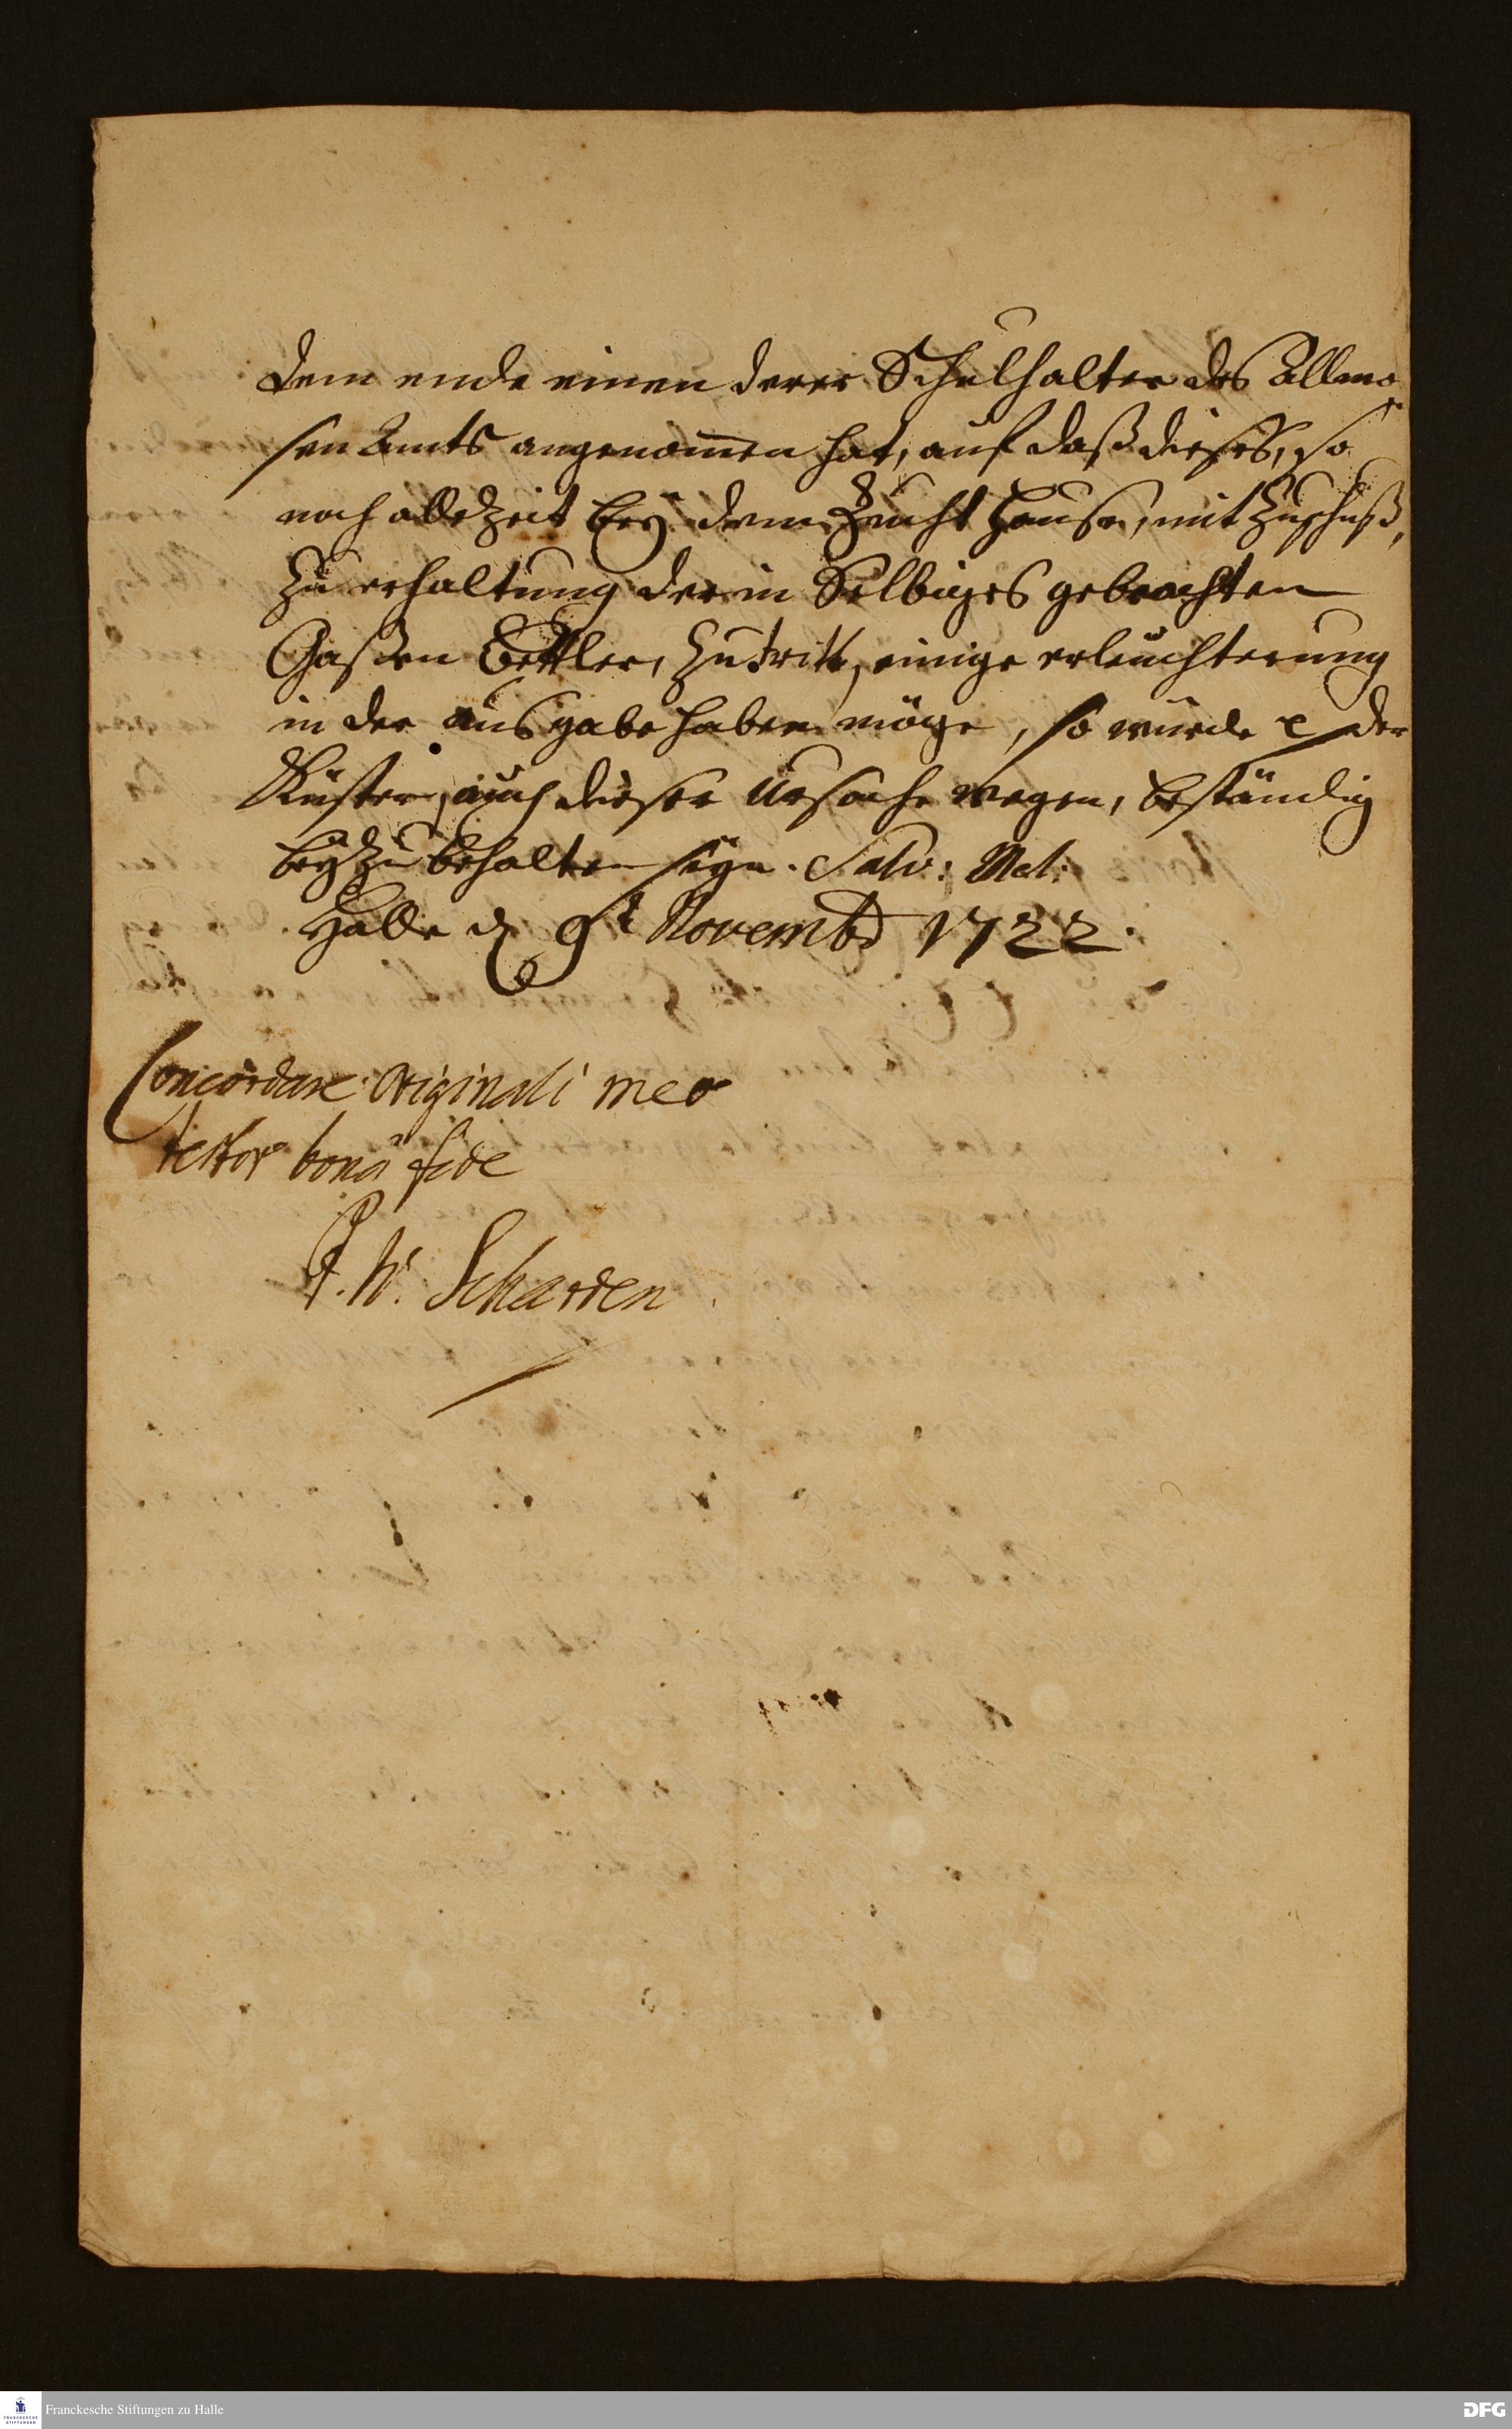 dem ende einen derer Schulhalter des Allmo
sen Amts angenom̅en hat, auf daß dieses, so
noch allezeit bey dem Zucht Hause, mit Zuschuß,
zu erhaltung derer in Selbiges gebrachten
Gaßen Bettler, zutritt, einige erleuchterung
in der ausgabe haben möge, so würde der
Küster, auch dieser Ursache wegen, beständig
beyzubehalten seyn. Salv: Mel:
Halle d 9t Novembr 1722.
Concordare originali meo
testor bonâ fide
J. W. Scharden
Franckesche Stiftungen zu Halle
FRANCKESCHE
STIFTUNGEN
DFG